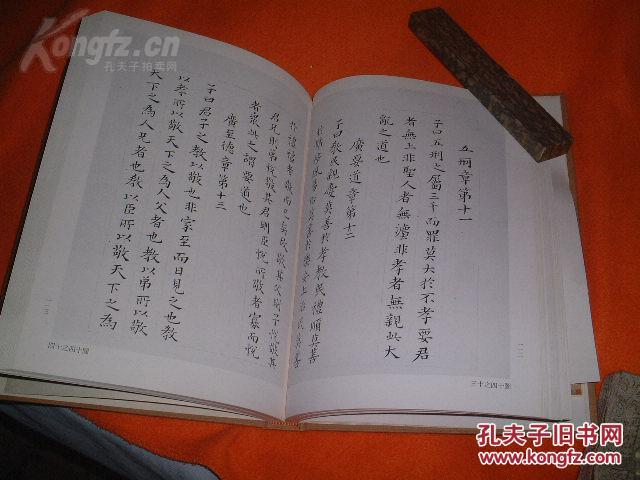 Kongfz.cn
孔夫子拍卖网
五刑章第十一
子曰五刑之屬三千而罪莫大於不孝要君
者無上非聖人者無灋非孝者無親此大
亂之道也
廣要道章第十二
子曰教民親愛莫善於孝教民禮順莫善
於悌移風易俗莫善於樂安上治民莫善
一二
三十之四十圖
於禮禮者敬而已矣故敬其父則子悅敬其
兄則弟悅敬其君則臣悅所敬者寡而悅
者眾此之謂要道也
廣至德章第十三
子曰君子之教以孝也非家至而日見之也教
以孝所以敬天下之為人父者也教以弟所以敬
天下之為人兄者也教以臣所以敬天下之為
一三
四十之四十圖
孔夫子旧书网
www.kongfz.com